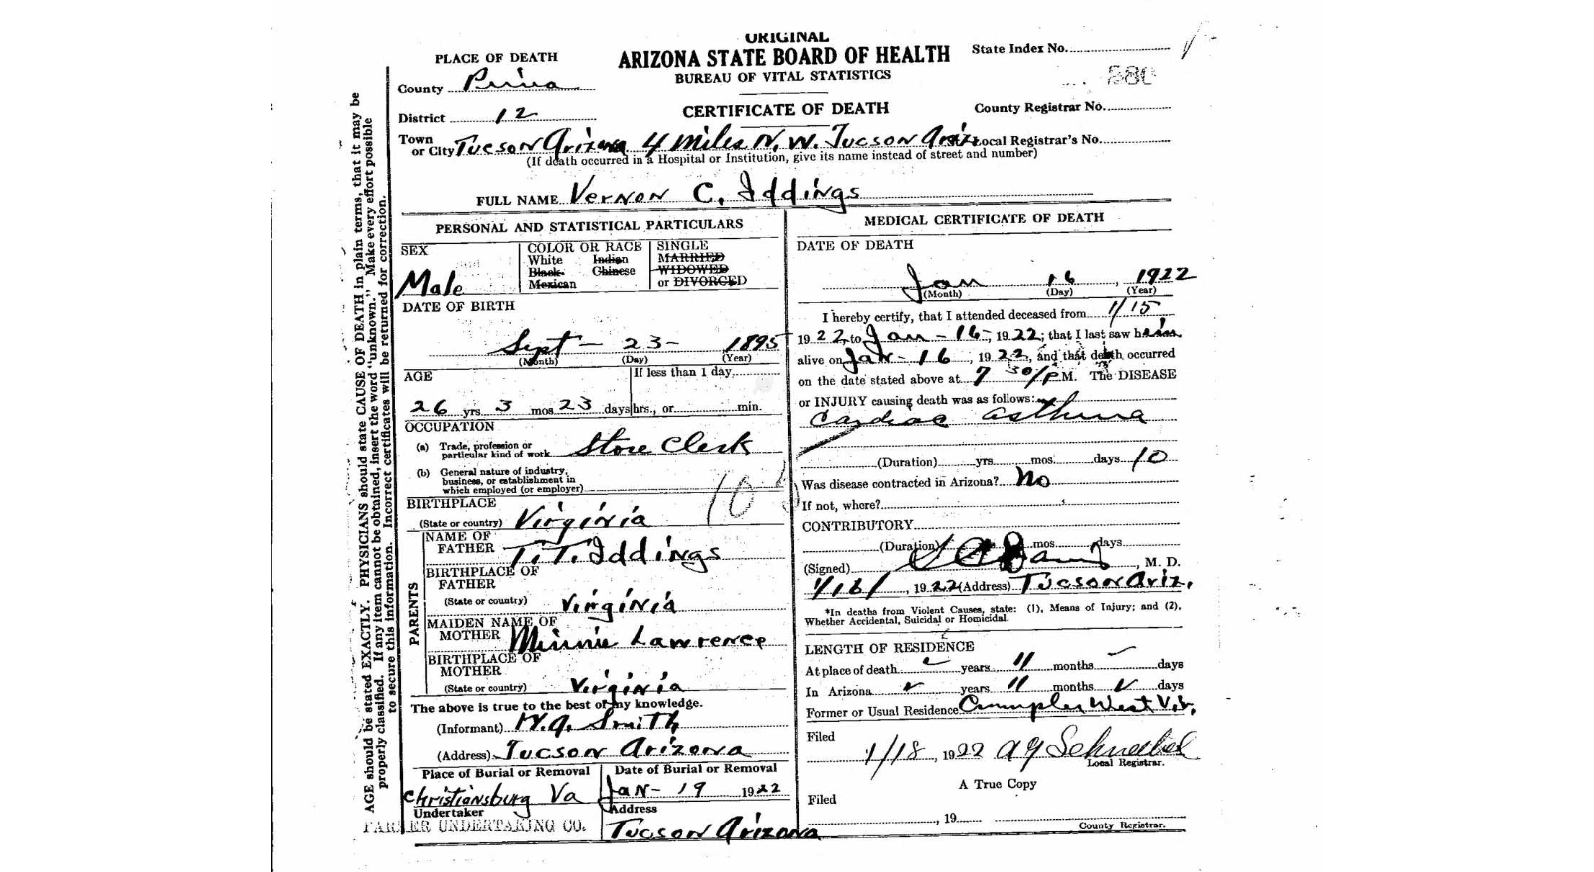 ORIGINAL
ARIZONA STATE BOARD OF HEALTH
BUREAU OF VITAL STATISTICS
CERTIFICATE OF DEATH
State Index No.
County Registrar No.
Local Registrar's No.
PLACE OF DEATH
County Pima
District 12
Town or City Tucson Arizona 4 Miles N. W. Tucson Ariz
(If death occurred in a Hospital or Institution, give its name instead of street and number)
FULL NAME Vernon C. Iddings
AGE should be stated EXACTLY. PHYSICIANS should state CAUSE OF DEATH in plain terms, that it may be
properly classified. If any item cannot be obtained, insert the word "unknown." Make every effort possible
to secure this information. Incorrect certificates will be returned for correction.
PERSONAL AND STATISTICAL PARTICULARS
SEX
Male
COLOR OR RACE
White Indian
Black Chinese
Mexican
SINGLE
MARRIED
WIDOWED
or DIVORCED
DATE OF BIRTH
Sept - 23 - 1895
(Month) (Day) (Year)
AGE
If less than 1 day
26 yrs. 3 mos. 23 days hrs., or min.
OCCUPATION
(a) Trade, profession or
particular kind of work Store Clerk
(b) General nature of industry,
business, or establishment in
which employed (or employer)
BIRTHPLACE
(State or country) Virginia
PARENTS
NAME OF
FATHER T. T. Iddings
BIRTHPLACE OF
FATHER
(State or country) Virginia
MAIDEN NAME OF
MOTHER Minnie Lawrence
BIRTHPLACE OF
MOTHER
(State or country) Virginia
The above is true to the best of my knowledge.
(Informant) Smith
(Address) Tucson Arizona
Place of Burial or Removal
Christiansburg Va
Date of Burial or Removal
Jan - 19 1922
Undertaker
UNDERTAKING CO.
Address
Tucson Arizona
MEDICAL CERTIFICATE OF DEATH
DATE OF DEATH
Jan 16, 1922
(Month) (Day) (Year)
I hereby certify, that I attended deceased from 1/15
1922, to Jan - 16 - 1922; that I last saw him
alive on Jan - 16, 1922, and that death occurred
on the date stated above at 7 30/P.M. The DISEASE
or INJURY causing death was as follows:
Cardiac asthma
(Duration) yrs. mos. days 10
Was disease contracted in Arizona? No
If not, where?
CONTRIBUTORY
(Duration) mos. days.
(Signed) M. D.
1/16/, 1922 (Address) Tucson Ariz.
*In deaths from Violent Causes, state: (1), Means of Injury; and (2),
Whether Accidental, Suicidal or Homicidal.
LENGTH OF RESIDENCE
At place of death years 11 months days
In Arizona years 11 months days
Former or Usual Residence Crumpler West Va.
Filed
1/18, 1922
Local Registrar.
A True Copy
Filed
, 19
County Registrar.